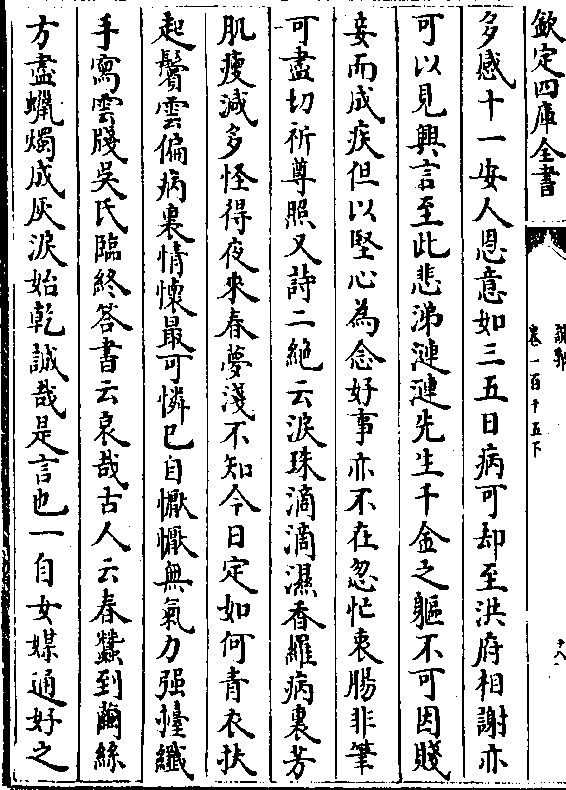 欽定四庫全書
說郛
卷一百十五下
十八
多感十一安人恩意如三五日病可却至洪府相謝亦
可以見興言至此悲涕漣漣先生千金之軀不可因賤
妾而成疾但以堅心為念好事亦不在忽忙衷腸非筆
可盡切祈尊照又詩二絶云淚珠滴滴濕香羅病裏芳
肌瘦減多怪得夜來春夢淺不知今日定如何青衣扶
起鬢雲偏病裏情懷最可憐已自懨懨無氣力强擡纖
手寫雲牋吳氏臨終答書云哀哉古人云春蠶到繭絲
方盡蠟燭成灰淚始乾誠哉是言也一自女媒通好之